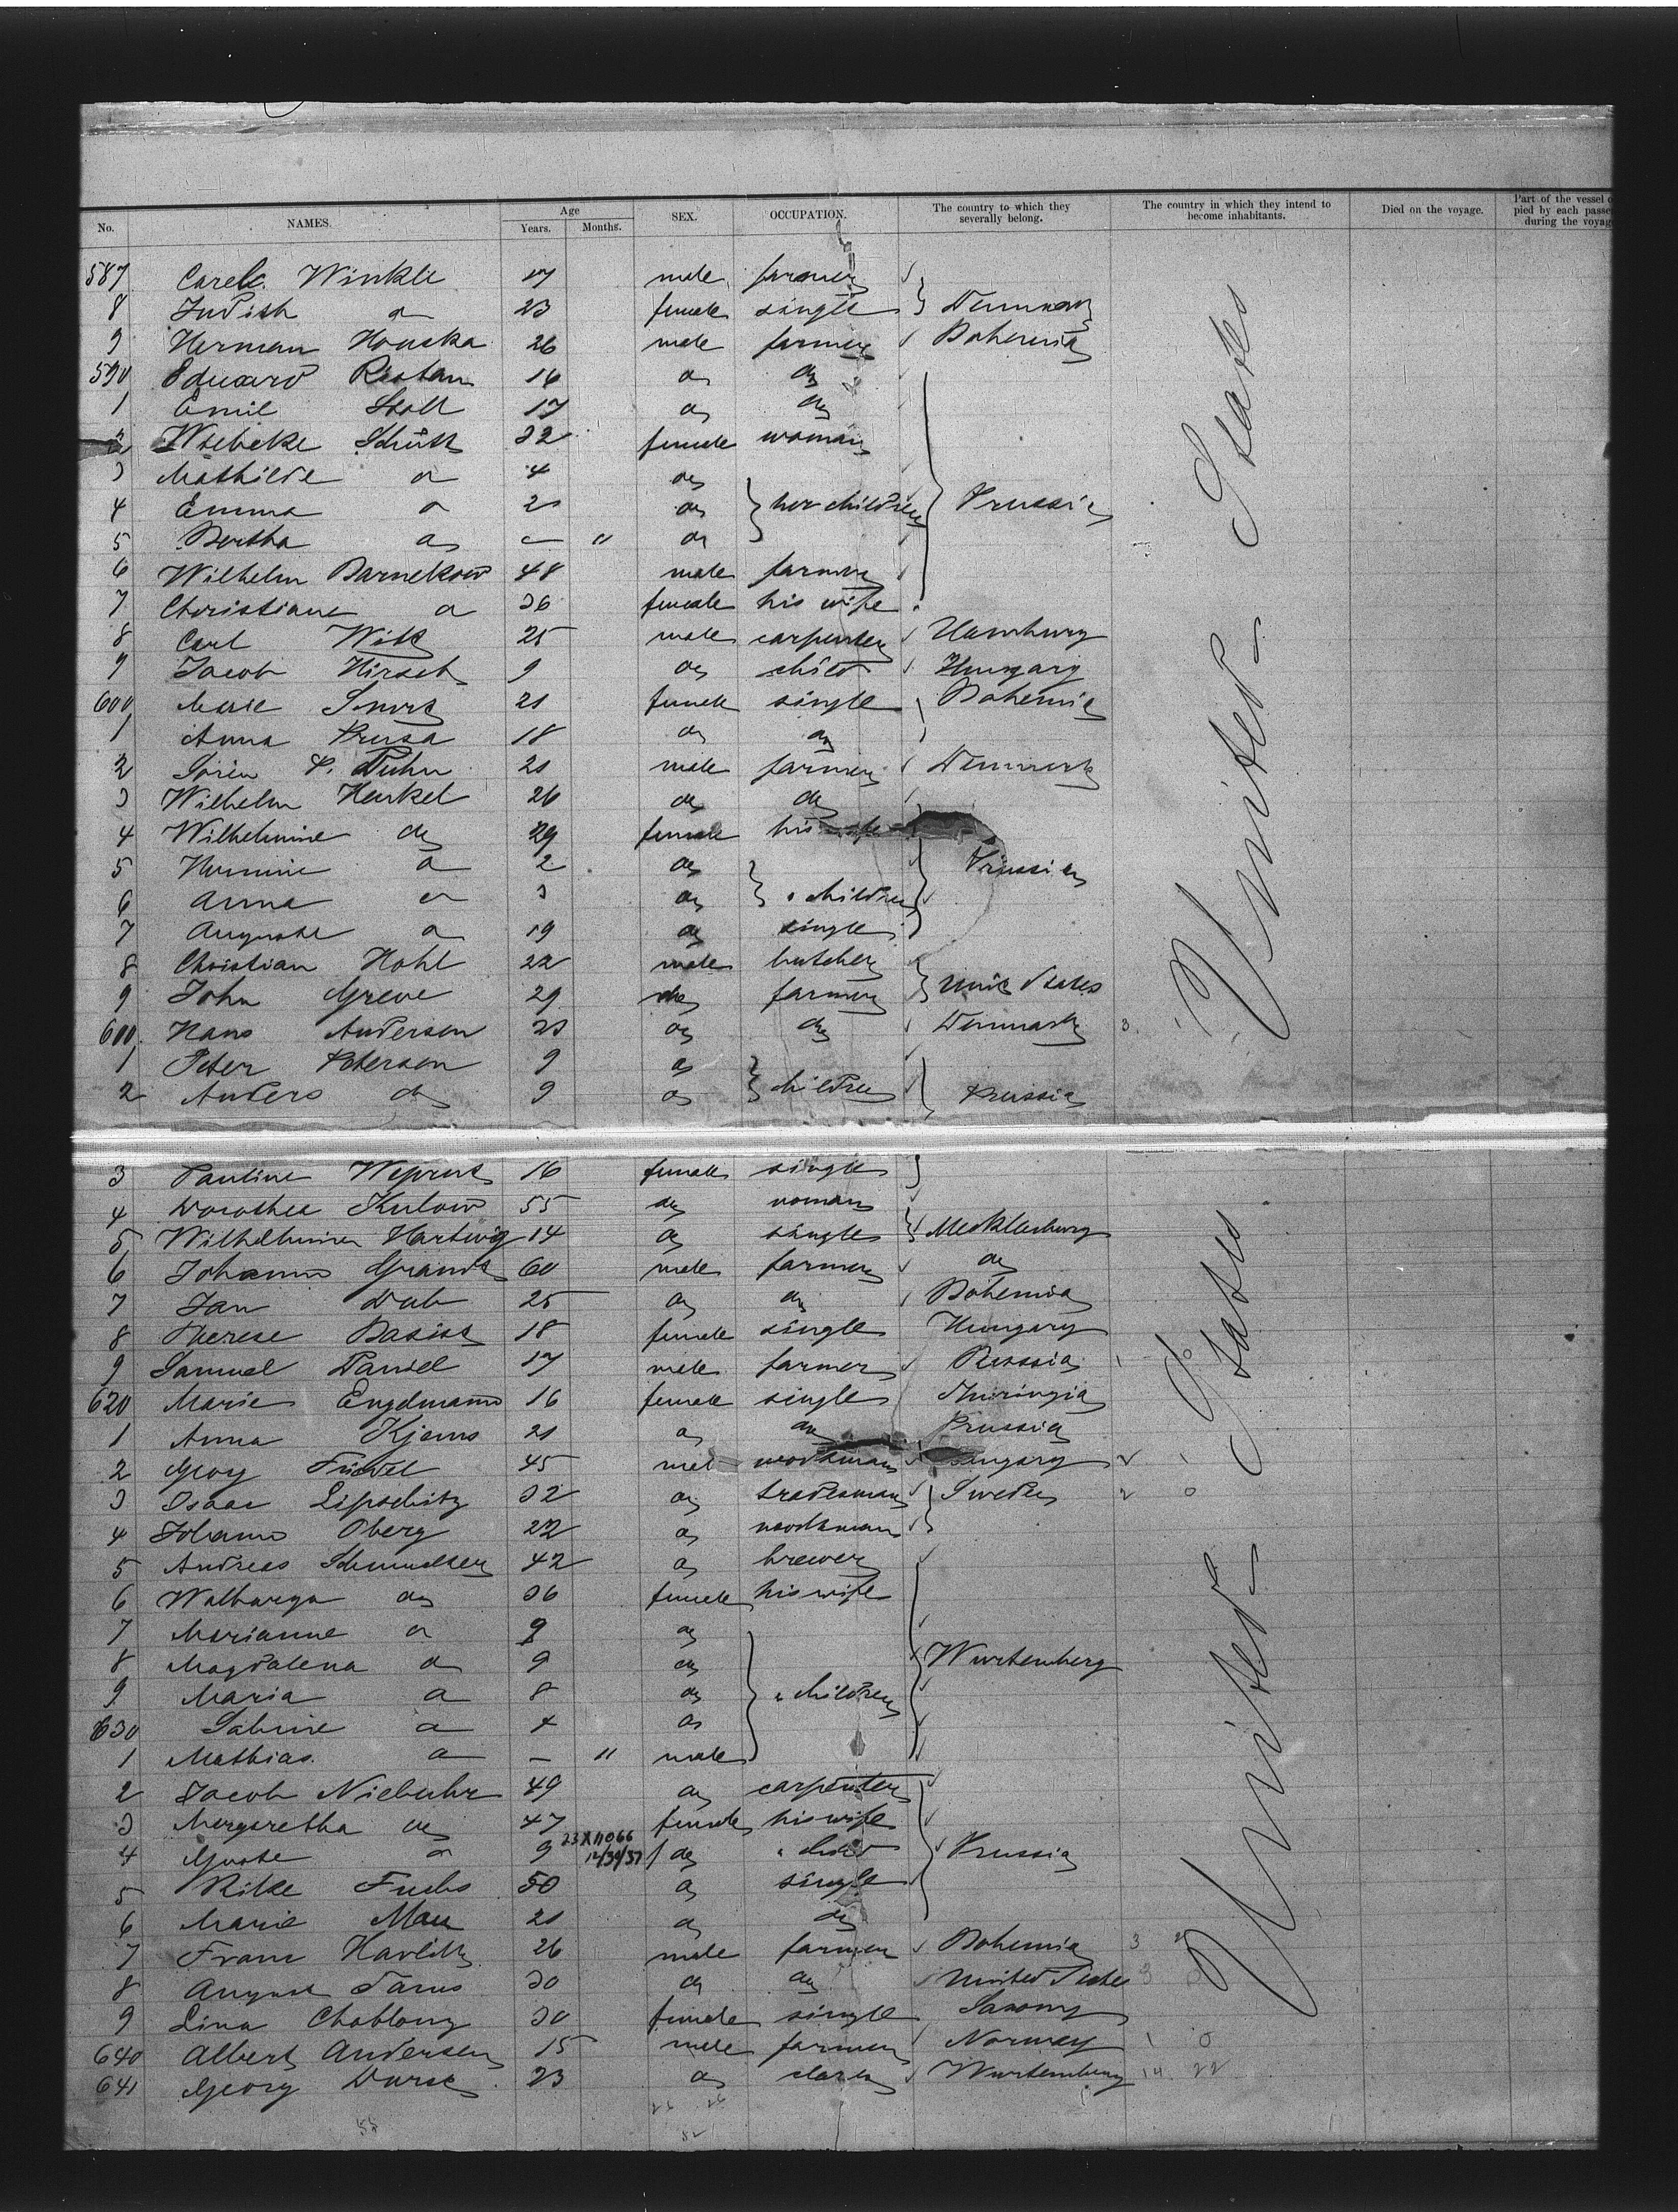 No. NAMES. Age Years. Months. SEX. OCCUPATION. The country to which they severally belong. The country in which they intend to become inhabitants. Died on the voyage. Part of the vessel pied by each passe during the voyag
587 Winkle 17 male farmer
8 Judith do 23 female single Denmark
9 Herman Houska 26 male farmer Bohemia
590 Eduard Ristau 16 do do
1 Emil Stoll 17 do do
2 Wiebeke Schütt 32 female woman
3 Mathilde do 4 do
4 Emma do 2 do her children Prussia
5 Bertha do — " do
6 Wilhelm Barnekow 48 male farmer
7 Christiane do 36 female his wife
8 Carl Witt 25 male carpenter Hamburg
9 Jacob Hirsch 9 do child Hungary
600 Marie 21 female single Bohemia
1 Anna Prusa 18 do do
2 Sören P. Duhn 21 male farmer Denmark
3 Wilhelm Henkel 26 do do
4 Wilhelmine do 29 female his wife
5 Hermine do 2 do Prussia
6 Anna do 3 do " children
7 Auguste do 19 do single
8 Christian Hohl 22 male butcher
9 John Greve 29 do farmer Unit States
600 Hans Andersen 23 do do Denmark 3.
1 Peter Petersen 9 do
2 Anders do 9 do children Prussia
United States
3 Pauline 16 female single
4 Dorothea Kulow 55 do woman
5 Wilhelmine Hartwig 14 do single Mecklenburg
6 Johann Grandt 60 male farmer do
7 Jan Dub 25 do do Bohemia
8 Therese 18 female single Hungary
9 Samuel Daniel 17 male farmer Russia 1 0
620 Marie Engelmann 16 female single Thuringia
1 Anna Kjems 21 do do Prussia
2 Georg Friedel 45 male workman Hungary
3 Isaac Lipschitz 32 do tradesman Sweden 2 0
4 Johann Oberg 22 do workman
5 Andreas 42 do brewer
6 Walburga do 36 female his wife
7 Marianne do 9 do
8 Magdalena do 9 do Wurtemberg
9 Maria do 8 do " children
630 Sabine do 4 do
1 Mathias do — " male
2 Jacob Niebuhr 49 do carpenter
3 Margaretha do 47 female his wife
4 do 9 23X11066 12/39/37 do " child Prussia
5 Rike Fuchs 50 do single
6 Marie Mau 21 do do
7 Franz Havlik 26 male farmer Bohemia 3
8 August 30 do do United States 3
9 Lina 30 female single Saxony
640 Albert Andersen 15 male farmer Norway 1 0
641 Georg 23 do clark Wurtemburg 14 22
United States